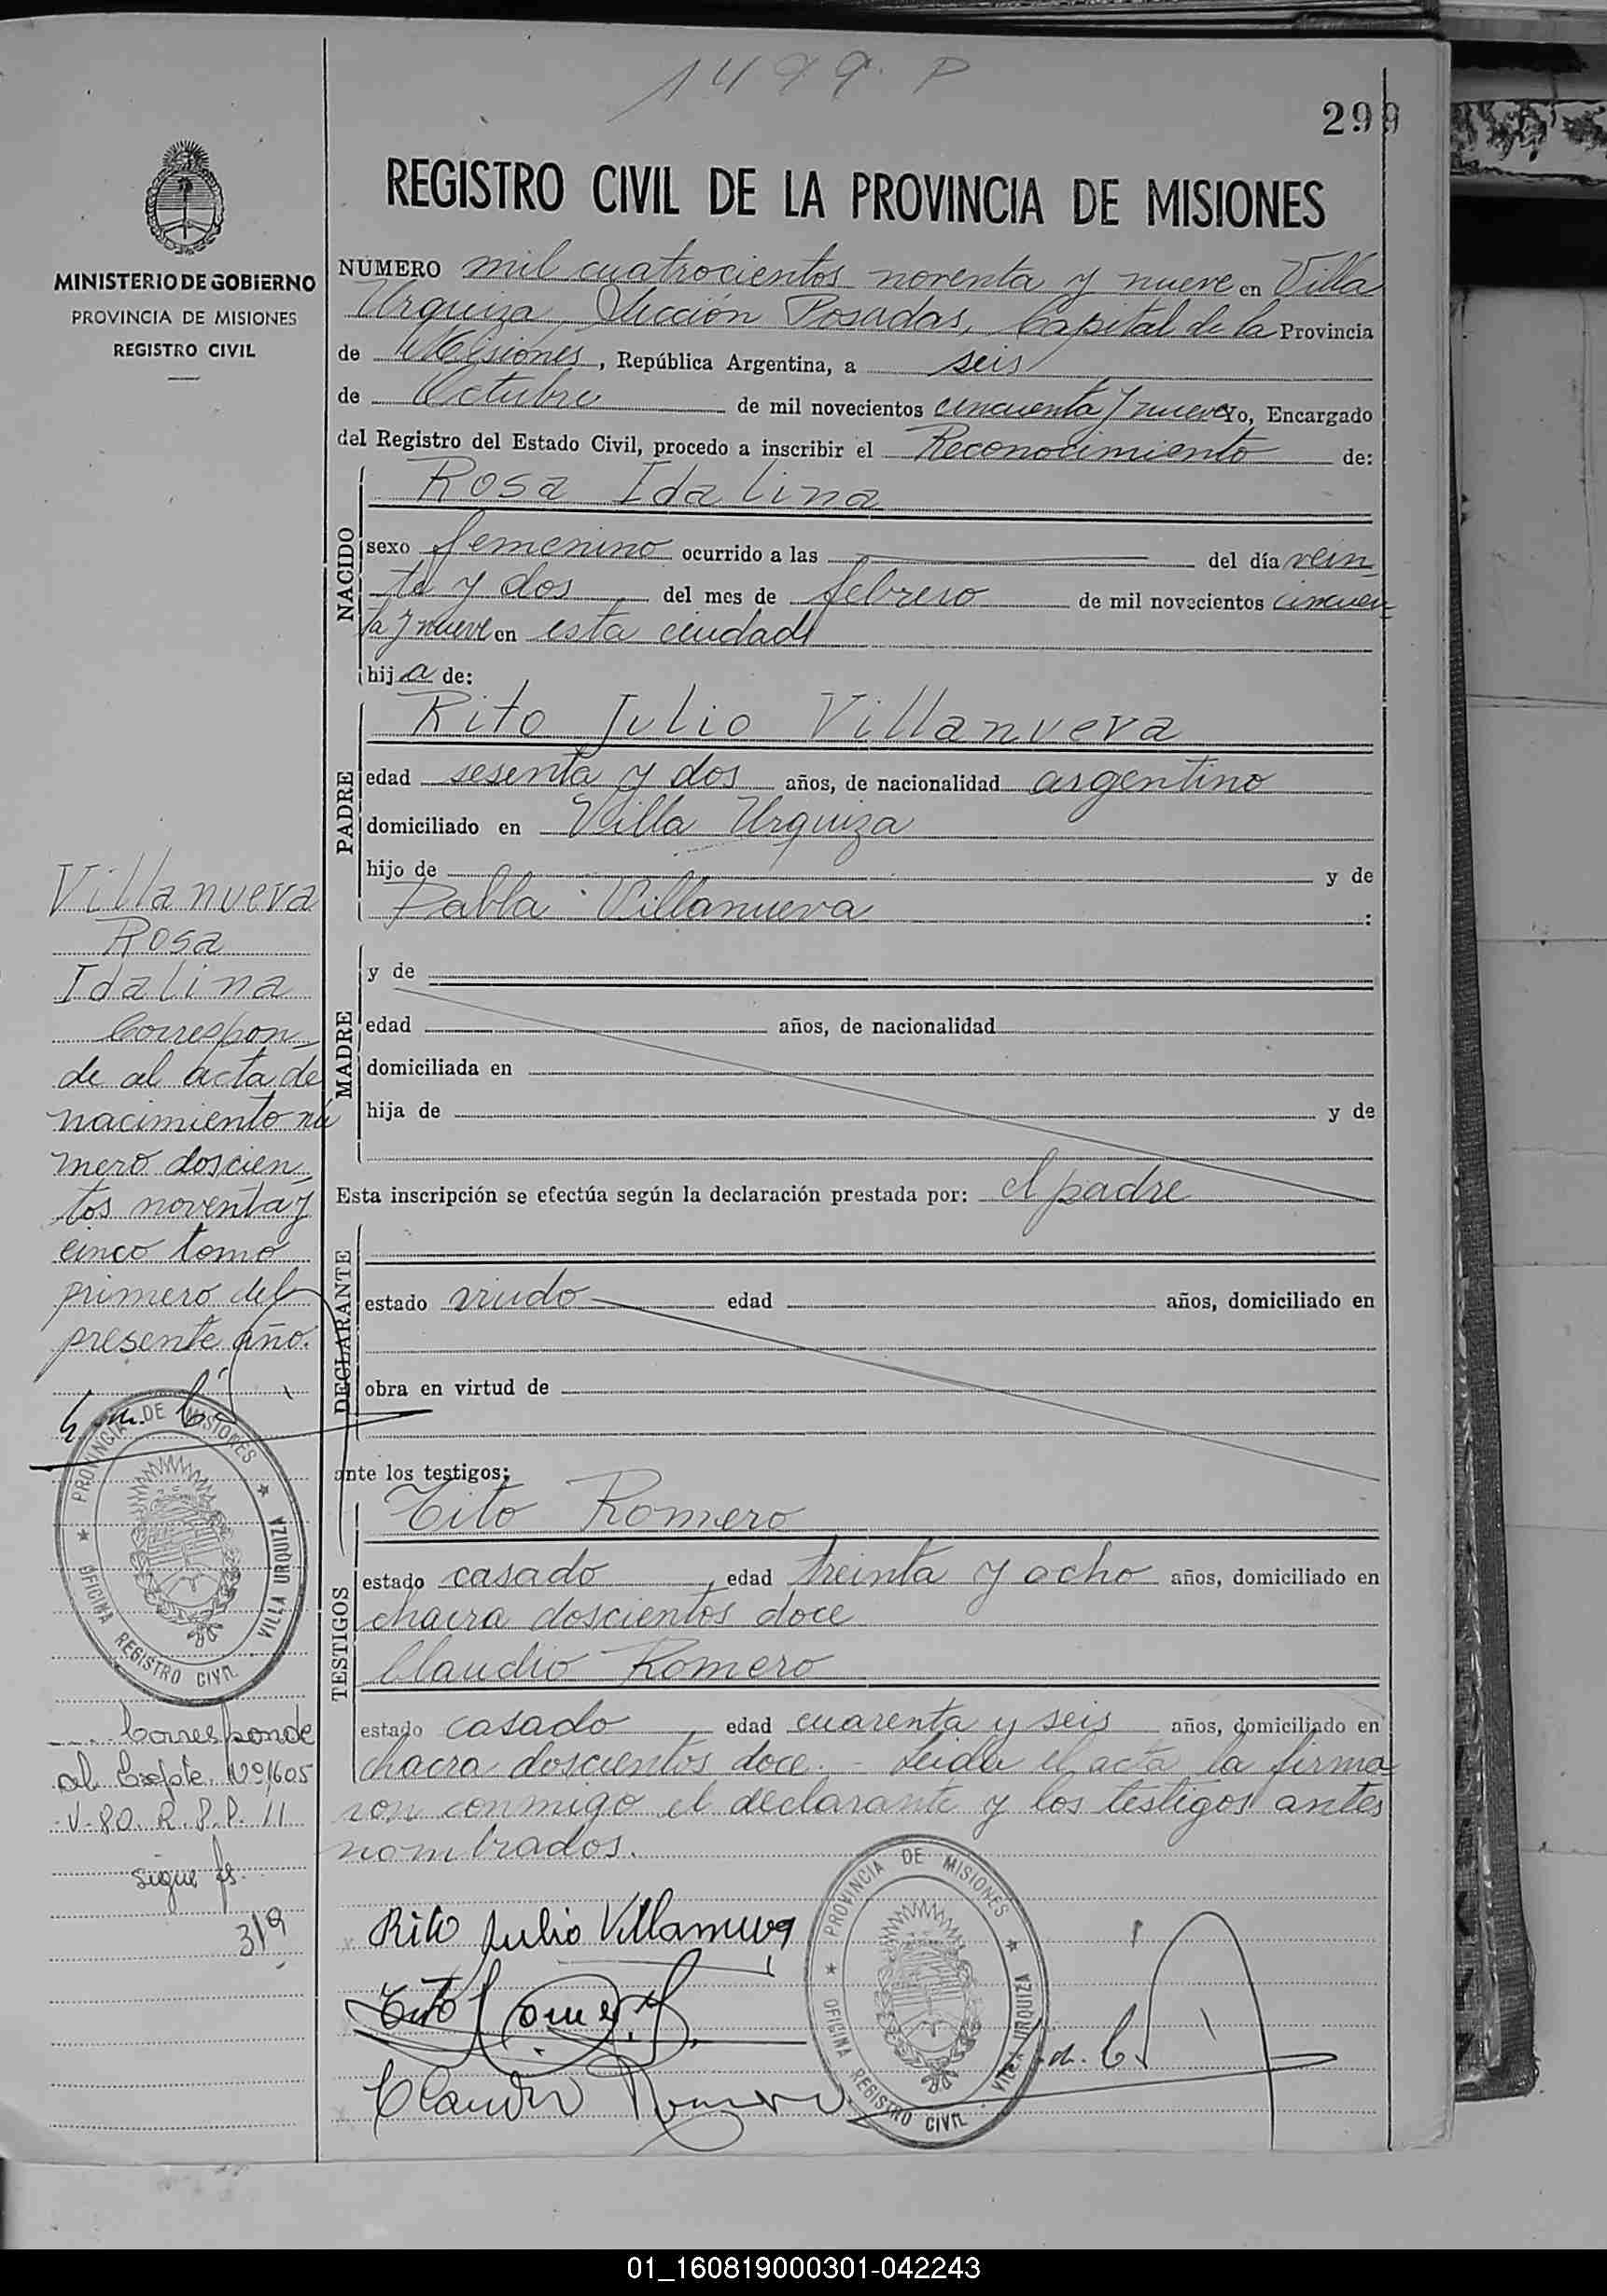 1499. P
299
REGISTRO CIVIL DE LA PROVINCIA DE MISIONES
MINISTERIO DE GOBIERNO
PROVINCIA DE MISIONES
REGISTRO CIVIL
NUMERO mil cuatrocientos noventa y nueve en Villa
Urquiza, Sección Posadas, Capital de la Provincia
de Misiones, República Argentina, a seis
de Octubre de mil novecientos cincuenta y nueve Yo, Encargado
del Registro del Estado Civil, procedo a inscribir el Reconocimiento de:
NACIDO
Rosa Idalina
sexo femenino ocurrido a las del día vein
te y dos del mes de febrero de mil novecientos cincuen
ta y nueve en esta ciudad
hija de:
PADRE
Rito Julio Villanueva
edad sesenta y dos años, de nacionalidad argentino
domiciliado en Villa Urquiza
hijo de y de
Pabla Villanueva :
MADRE
y de
edad años, de nacionalidad
domiciliada en
hija de y de
Esta inscripción se efectúa según la declaración prestada por: el padre
DECLARANTE
estado viudo edad años, domiciliado en
obra en virtud de
ante los testigos:
TESTIGOS
Tito Romero
estado casado, edad treinta y ocho años, domiciliado en
chacra doscientos doce
Claudio Romero
estado casado, edad cuarenta y seis años, domiciliado en
chacra doscientos doce. - Leida el acta la firma
ron conmigo el declarante y los testigos antes
nombrados.
Rito Julio Villanueva
Tito Romero
Claudio Romero
PROVINCIA DE MISIONES
OFICINA REGISTRO CIVIL VILLA URQUIZA
Villanueva
Rosa
Idalina
Correspon
de al acta de
nacimiento nú
mero doscien
tos noventa y
cinco tomo
primero del
presente año.
PROVINCIA DE MISIONES
OFICINA REGISTRO CIVIL VILLA URQUIZA
Corresponde
al Expte. Nº 1605
V-80. R.P.P. 11
sigue fs.
319
01_160819000301-042243